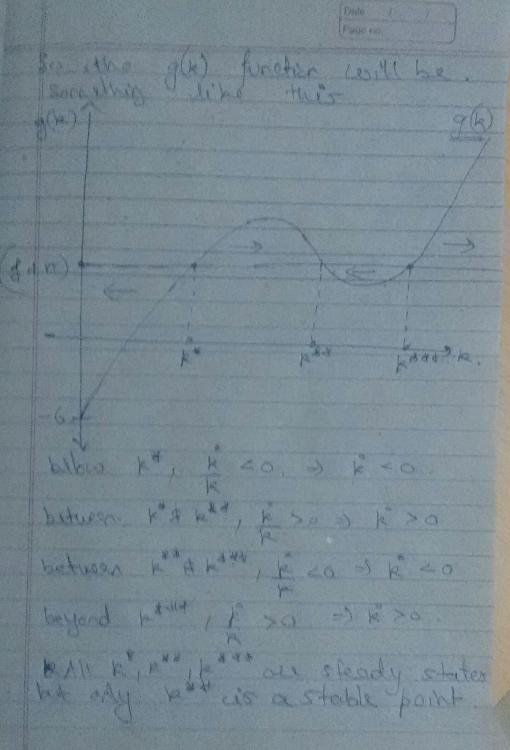 Date / /
Page no.
So the g(k) function will be.
something like this
g(k)
g(k)
(δ+n)
k* k** k*** k.
-6
below k*, k̇/k <0 ⇒ k̇ <0.
between k* & k**, k̇/k >0 ⇒ k̇ >0
between k** & k***, k̇/k <0 ⇒ k̇ <0
beyond k***, k̇/k >0 ⇒ k̇ >0.
All k*, k**, k*** are steady states
but only k** is a stable point.